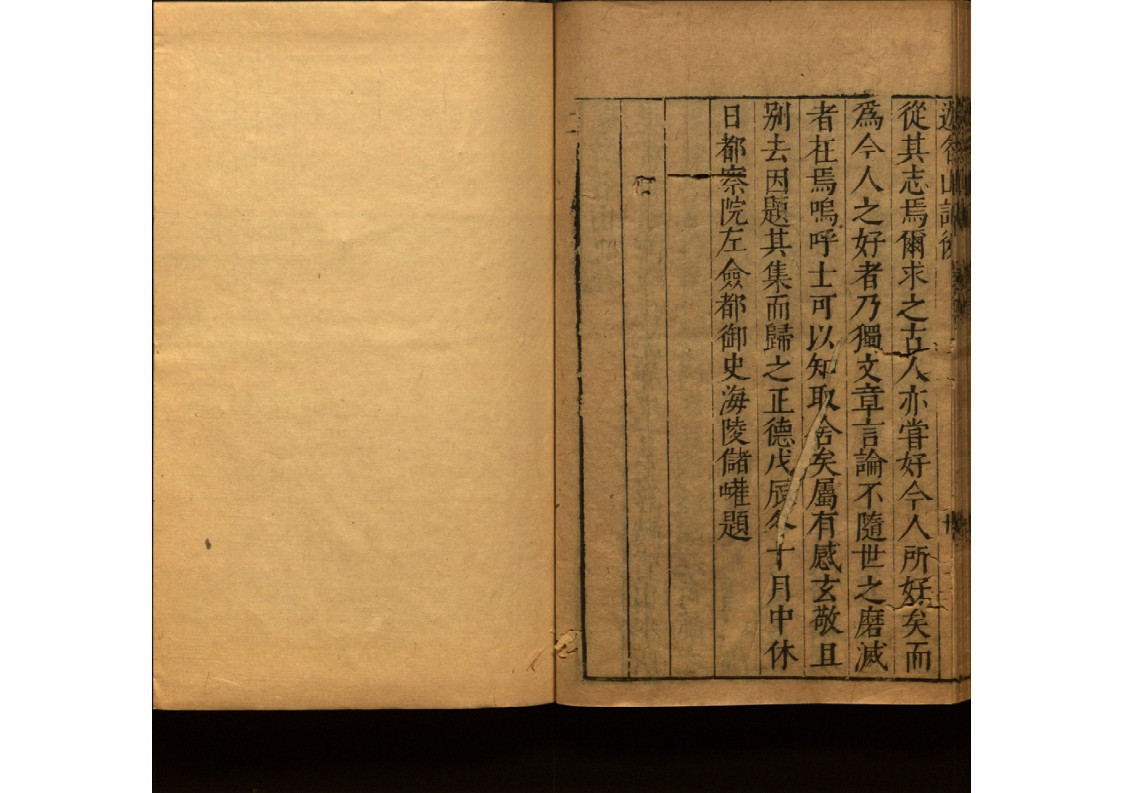 從其志焉爾求之古人亦嘗好今人所好矣而
爲今人之好者乃獨文章言論不隨世之磨滅
者枉焉嗚呼士可以知取舍矣屬有感玄敬且
别去因題其集而歸之正德戊辰冬十月中休
日都察院左僉都御史海陵儲巏題